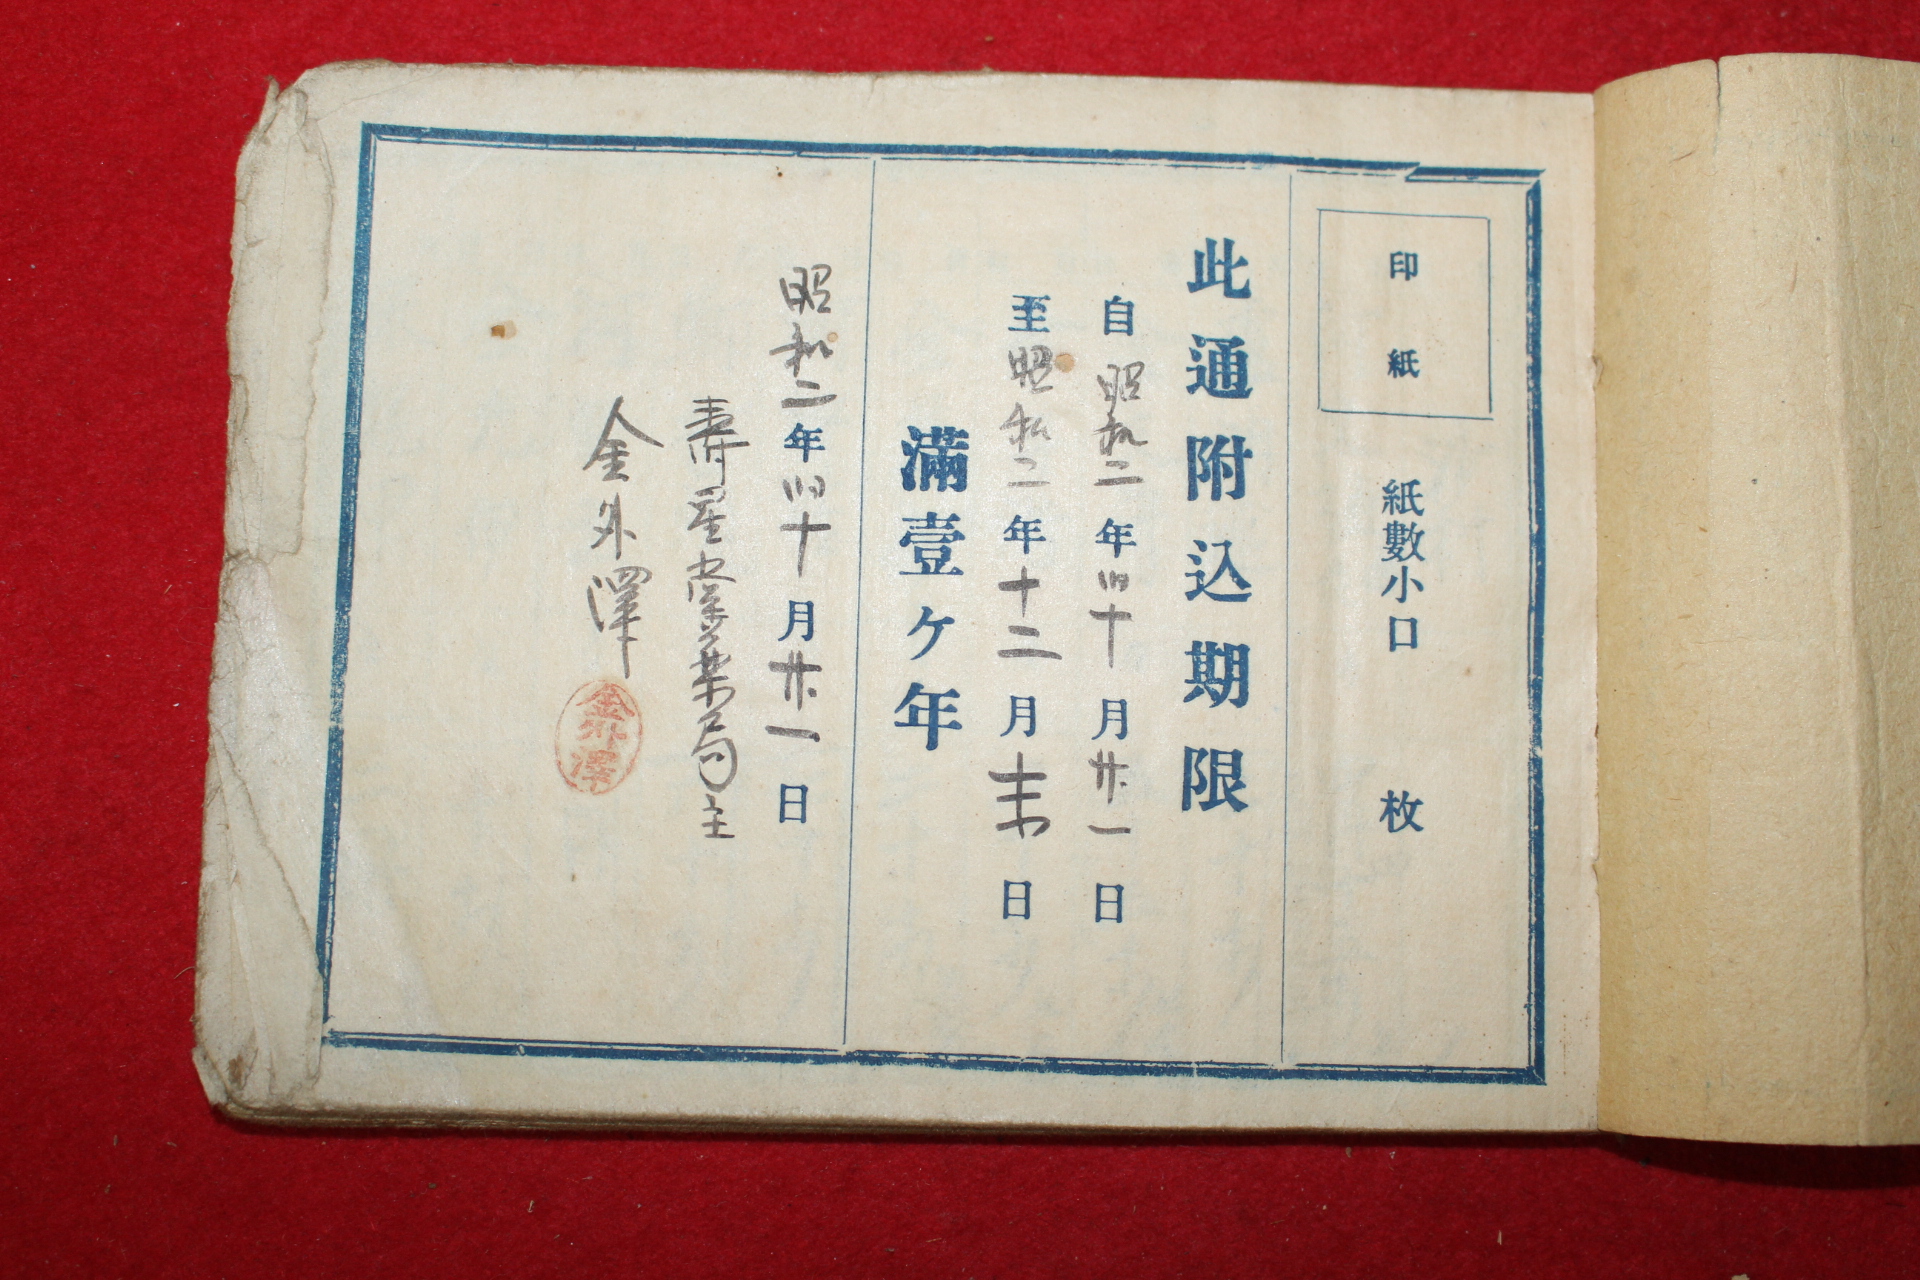 印紙
紙數小口　枚
此通附込期限
自昭和二年旧十月廿一日
至昭和二年十二月末日
滿壹ケ年
昭和二年旧十月廿一日
壽星堂藥局主
金外澤
金外澤